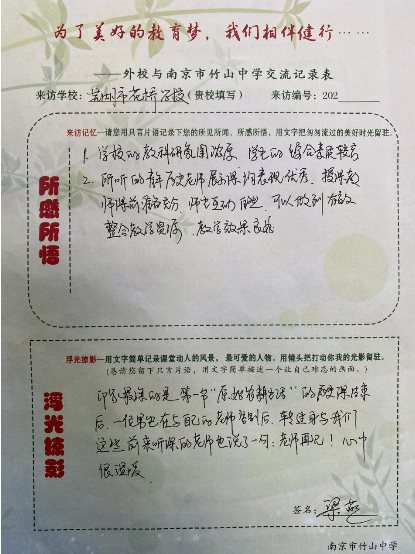 为了美好的教育梦，我们相伴健行……
——外校与南京市竹山中学交流记录表
来访学校：芜湖市花桥学校（贵校填写） 来访编号：202
来访记忆—请您用只言片语记录下您的所见所闻、所感所悟，用文字把匆匆流过的美好时光留驻。
所感所悟
1. 学校的教科研氛围浓厚，学生的综合素质较高
2. 所听的青年历史老师展示课均表现优秀，授课教
师课前准备充分，师生互动自然，可以做到有效
整合教学资源，教学效果良好
浮光掠影—用文字简单记录课堂动人的风景，最可爱的人物，用镜头把打动你我的光影留驻。
（恳请您留下只言片语，用文字简单描述一个让自己难忘的画面。）
浮光掠影
印象最深的是第一节“原始农耕生活”的授课结束
后，一位男生在与自己的老师告别后，转过身与我们
这些前来听课的老师也说了一句：老师再见！心中
很温暖。
签名：梁燕
南京市竹山中学